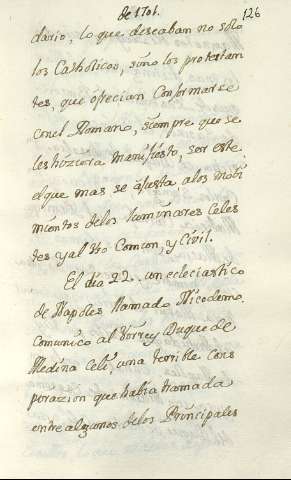 de 1701.
126
dario, lo que deseaban no sólo
los Catholicos, sino los protestan
tes, que ofrecian Conformarse
con el Romano, siempre que se
les hiziera manifiesto, ser este
el que mas se ajusta, a los mobi
mientos de los luminares Celes
tes y al Vso Comun, y Civil.
El dia 22. un eclesiastico
de Napoles llamado Nicodemo,
Comunicó al Virrey Duque de
Medina Celi, una terrible Cons
porazion que habia tramada
entre algunos de los Principales